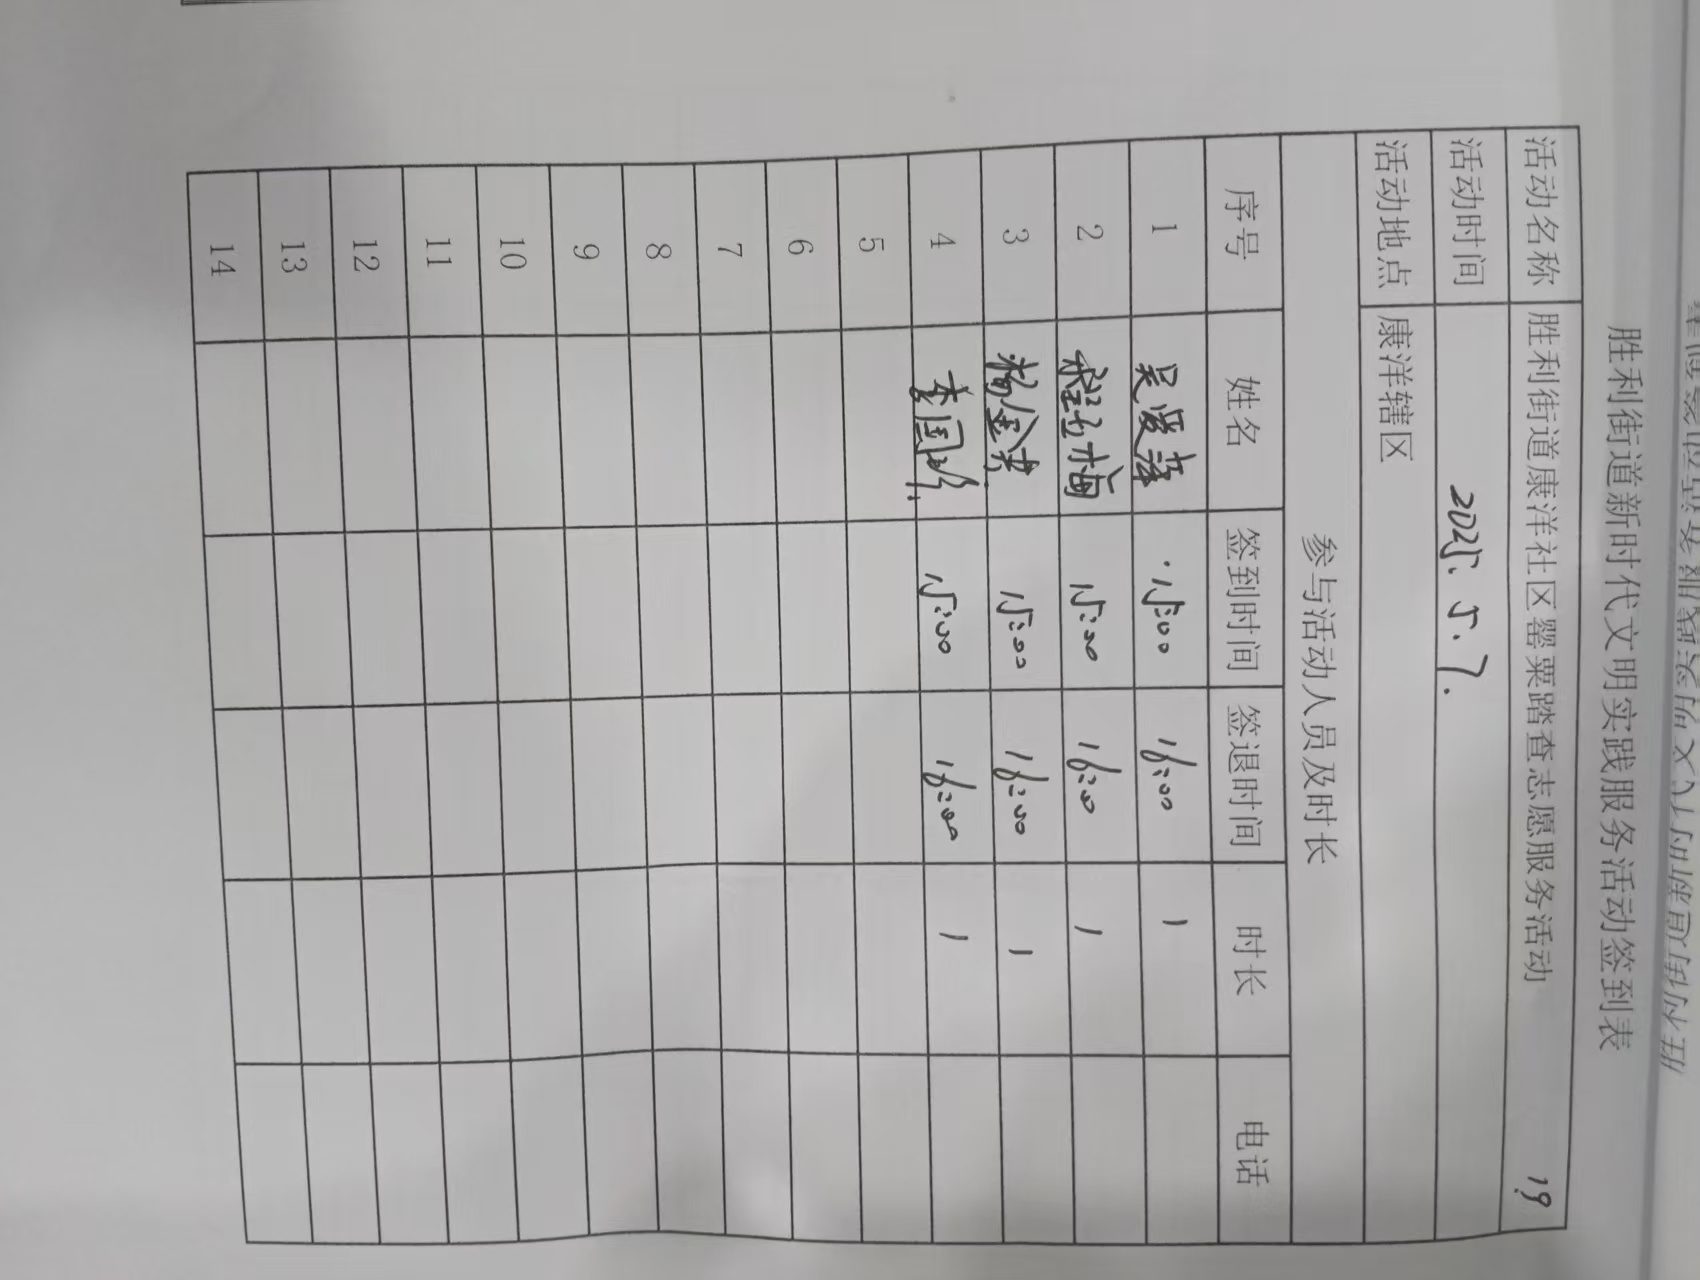 胜利街道新时代文明实践服务活动签到表
活动名称 胜利街道康洋社区罂粟踏查志愿服务活动 19
活动时间 2025.5.7.
活动地点 康洋辖区
参与活动人员及时长
序号 姓名 签到时间 签退时间 时长 电话
1 吴爱萍 15:00 16:00 1
2 程玉梅 15:00 16:00 1
3 杨金 15:00 16:00 1
4 李国 15:00 16:00 1
5
6
7
8
9
10
11
12
13
14